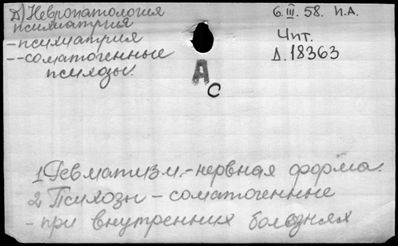 Д) Невропатология
психиатрия
- психиатрия
-- соматогенные
психозы.
6.III.58. И.А.
Чит.
Д.18363
А
С
1 Ревматизм.- нервная форма.
2 Психозы - соматогенные
- при внутренних болезнях